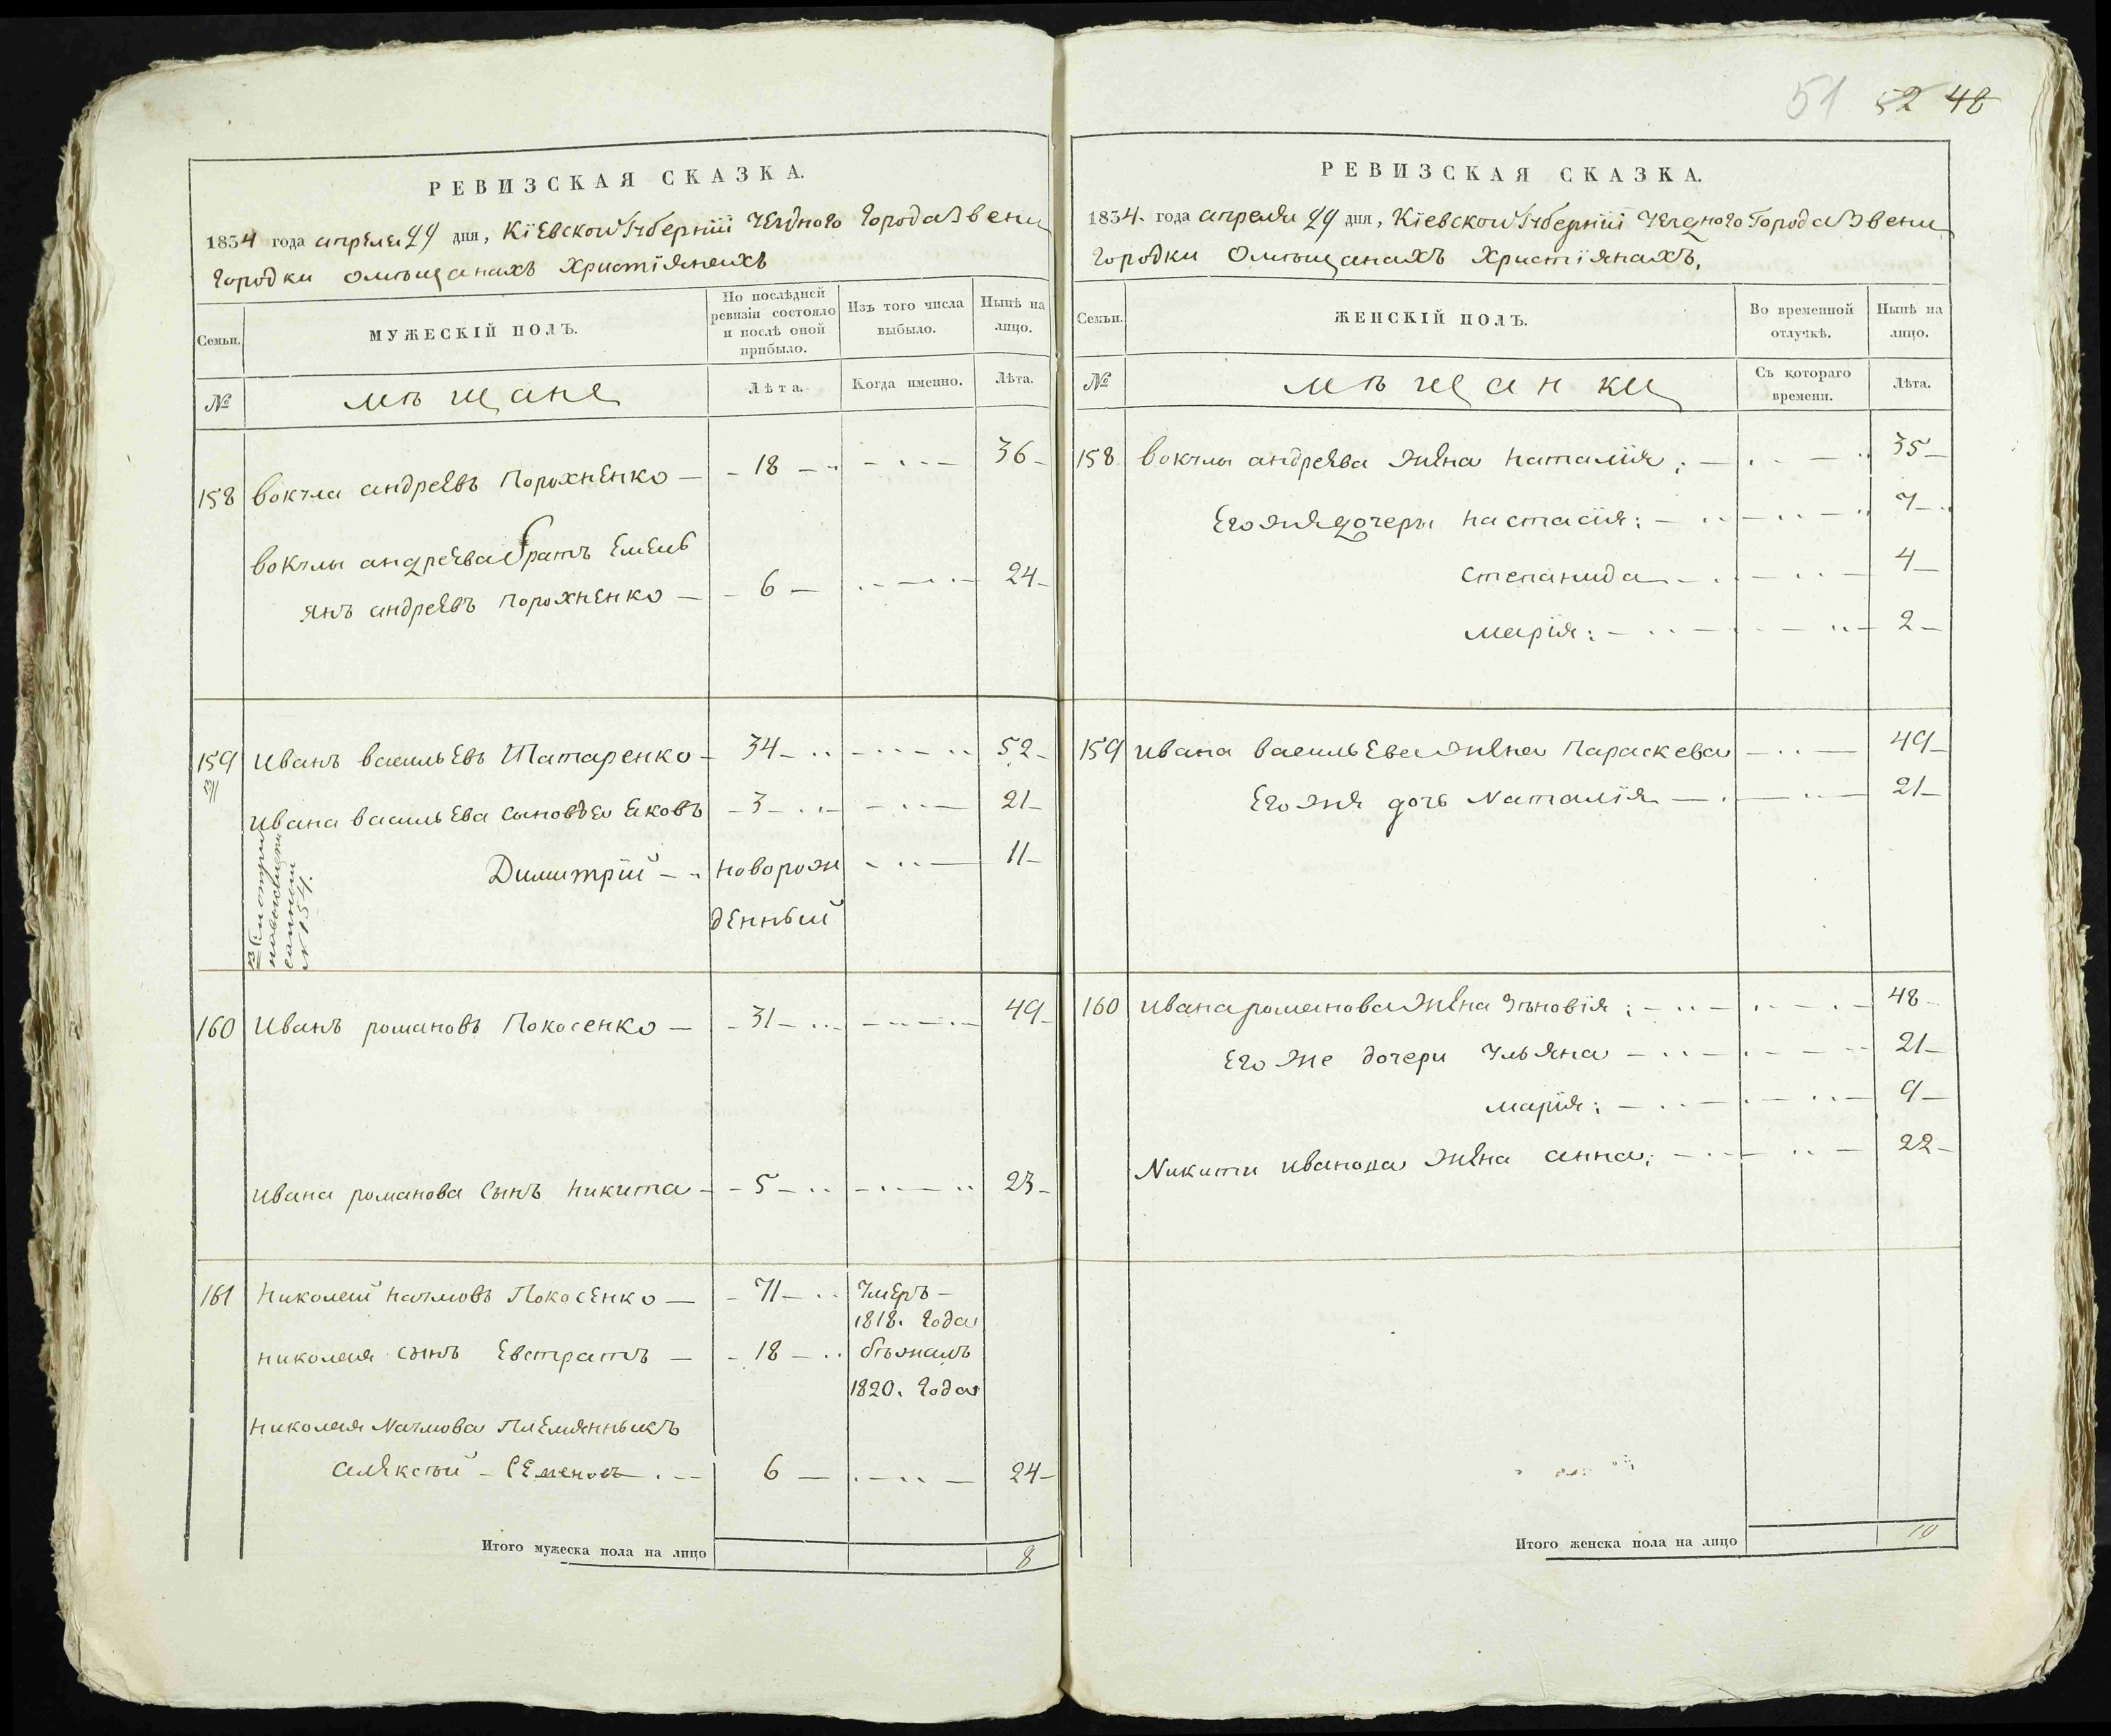 51 52 48
РЕВИЗСКАЯ СКАЗКА.
1834 года апреля 29 дня, Кіевской Губерніи Уезного Города Звени
Городки Омѣщанахъ Христіянахъ
Семьи. МУЖЕСКІЙ ПОЛЪ. По послѣдней ревизіи состояло и послѣ оной прибыло. Изъ того числа выбыло. Нынѣ на лицо.
№ мѣщане Лѣта. Когда именно. Лѣта.
158 Вокула андреевъ Порохненко — 18 — 36
Вокулы андреева братъ Емель
янъ андреевъ Порохненко — 6 — 24
159 Иванъ васильевъ Татаренко — 34 — 52
Ивана васильева сыновья Яковъ — 3 — 21
Димитрій — новорож 11
денный
№ 154.
160 Иванъ романовъ Покосенко — 31 — 49
Ивана романова сынъ Никита — 5 — 23
161 Николай наумовъ Покосенко — 71 — Умеръ —
1818. Года
николая сынъ Евстратъ — 18 — бѣжалъ
1820. Года
николая Наумова Племянныкъ
алексѣй — Семеновъ — 6 — 24
Итого мужеска пола на лицо 8
РЕВИЗСКАЯ СКАЗКА.
1834. года апреля 29 дня, Кіевской Губерніи Уезного Города Звени
Городки Омѣщанахъ Христіянахъ,
Семьи. ЖЕНСКІЙ ПОЛЪ. Во временной отлучкѣ. Нынѣ на лицо.
№ мѣщанки Съ котораго времени. Лѣта.
158 Вокулы андреева жена Наталія; — 35
Его жя дочеры Настасія: — 7
Степанида — 4
Марія: — 2
159 Ивана васильева жена Параскева — 49
Его жя дочь Наталія — 21
160 Ивана романова жена Зѣновія; — 48
Его же дочери Ульяна — 21
Марія: — 9
Никити Иванова жена анна; — 22
Итого женска пола на лицо 10